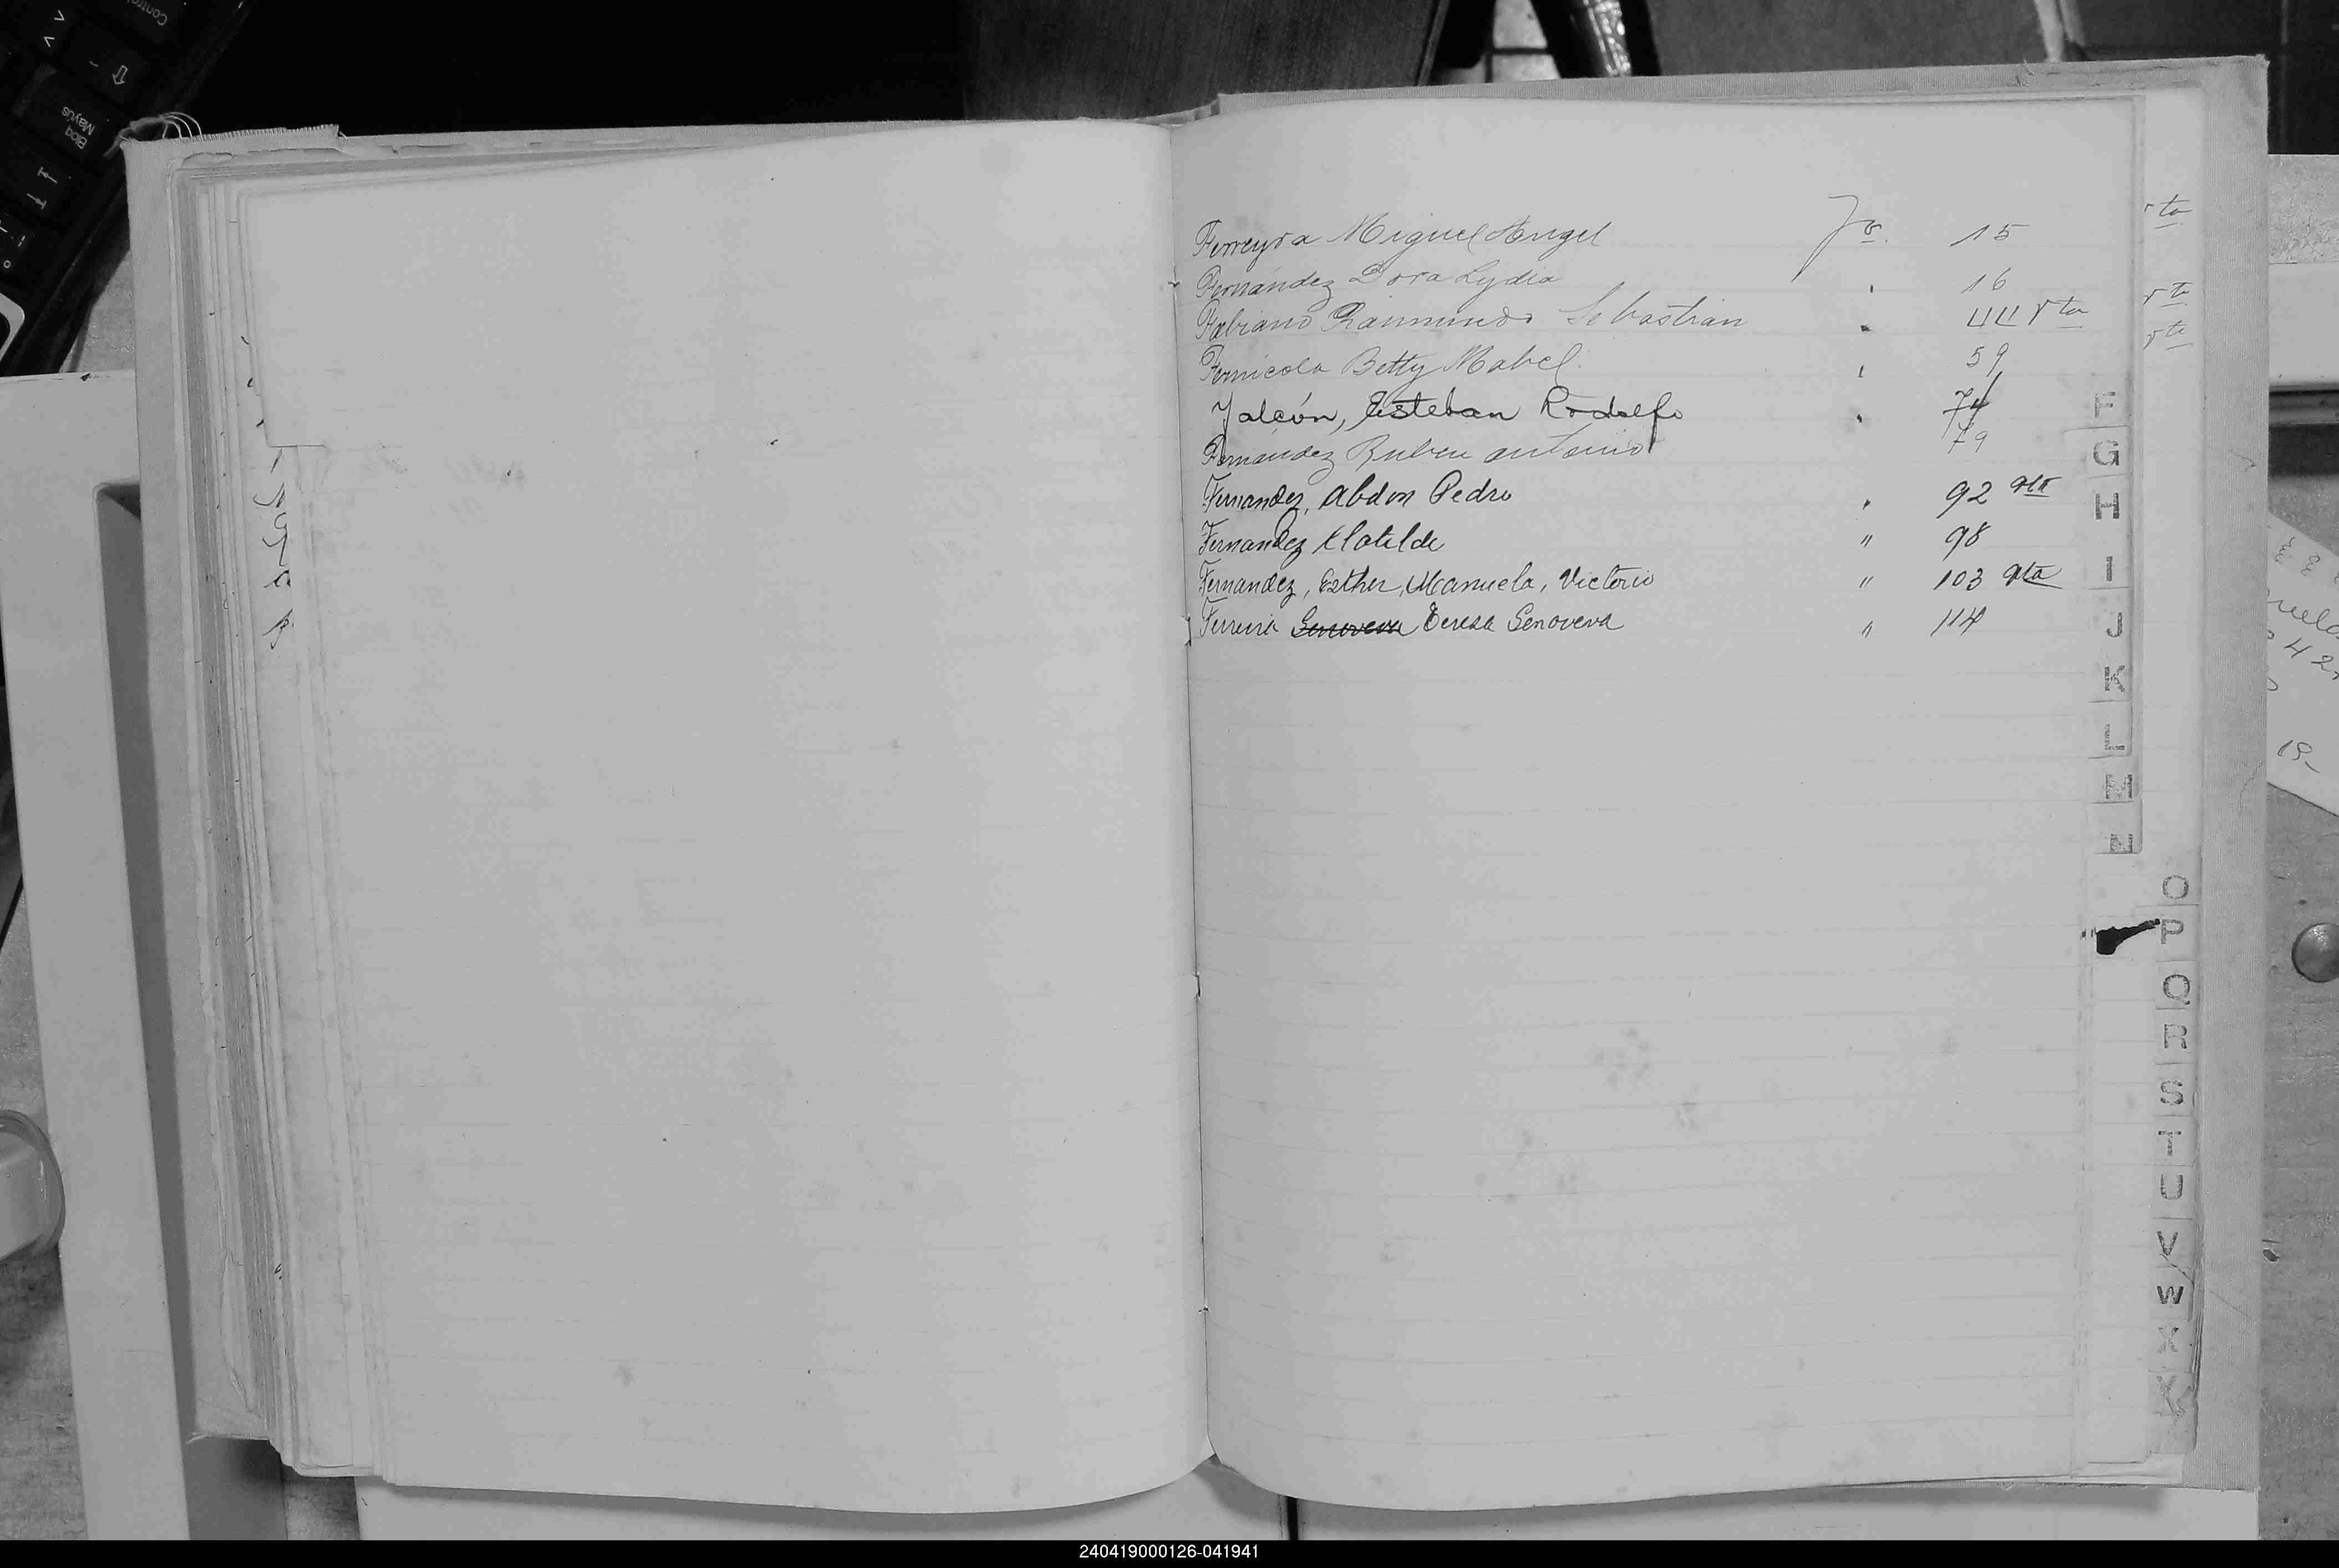 Ferreyra Miguel Angel Fo. 15
Fernández Dora Lydia , 16
Fabiano Raimundo Sebastian " 44 Vta
Fernicola Betty Mabel , 59
Falcón, Esteban Rodolfo " 74
Fernández Ruben Antonio 79
Fernandez, Abdon Pedro " 92 vta
Fernandez Clotilde " 98
Fernandez, Esther, Manuela, Victorio " 103 vta
Genoveva Teresa Genoveva " 114
vta
vta
vta
F
G
H
I
J
K
L
M
N
O
P
Q
R
S
T
U
V
W
X
Y
Bloq
Mayús
19.-
240419000126-041941